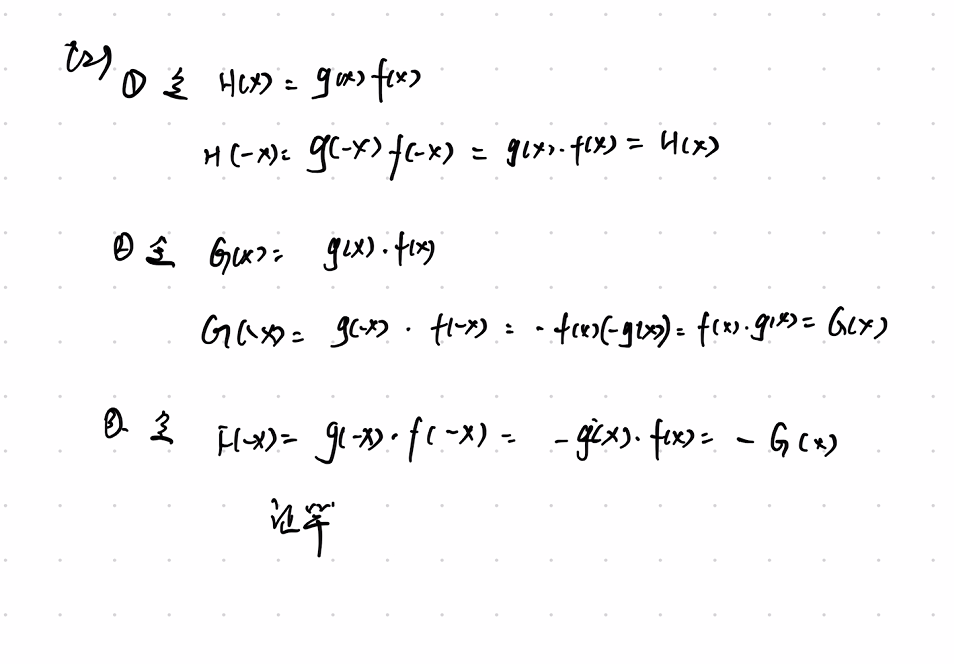 (2) ① 令 H(x) = g(x) f(x)
H(-x) = g(-x) f(-x) = g(x)·f(x) = H(x)
② 令 G(x) = g(x)·f(x)
G(-x) = g(-x) · f(-x) = -f(x)(-g(x)) = f(x)·g(x) = G(x)
③ 令 F(-x) = g(-x)·f(-x) = -g(x)·f(x) = -G(x)
证毕